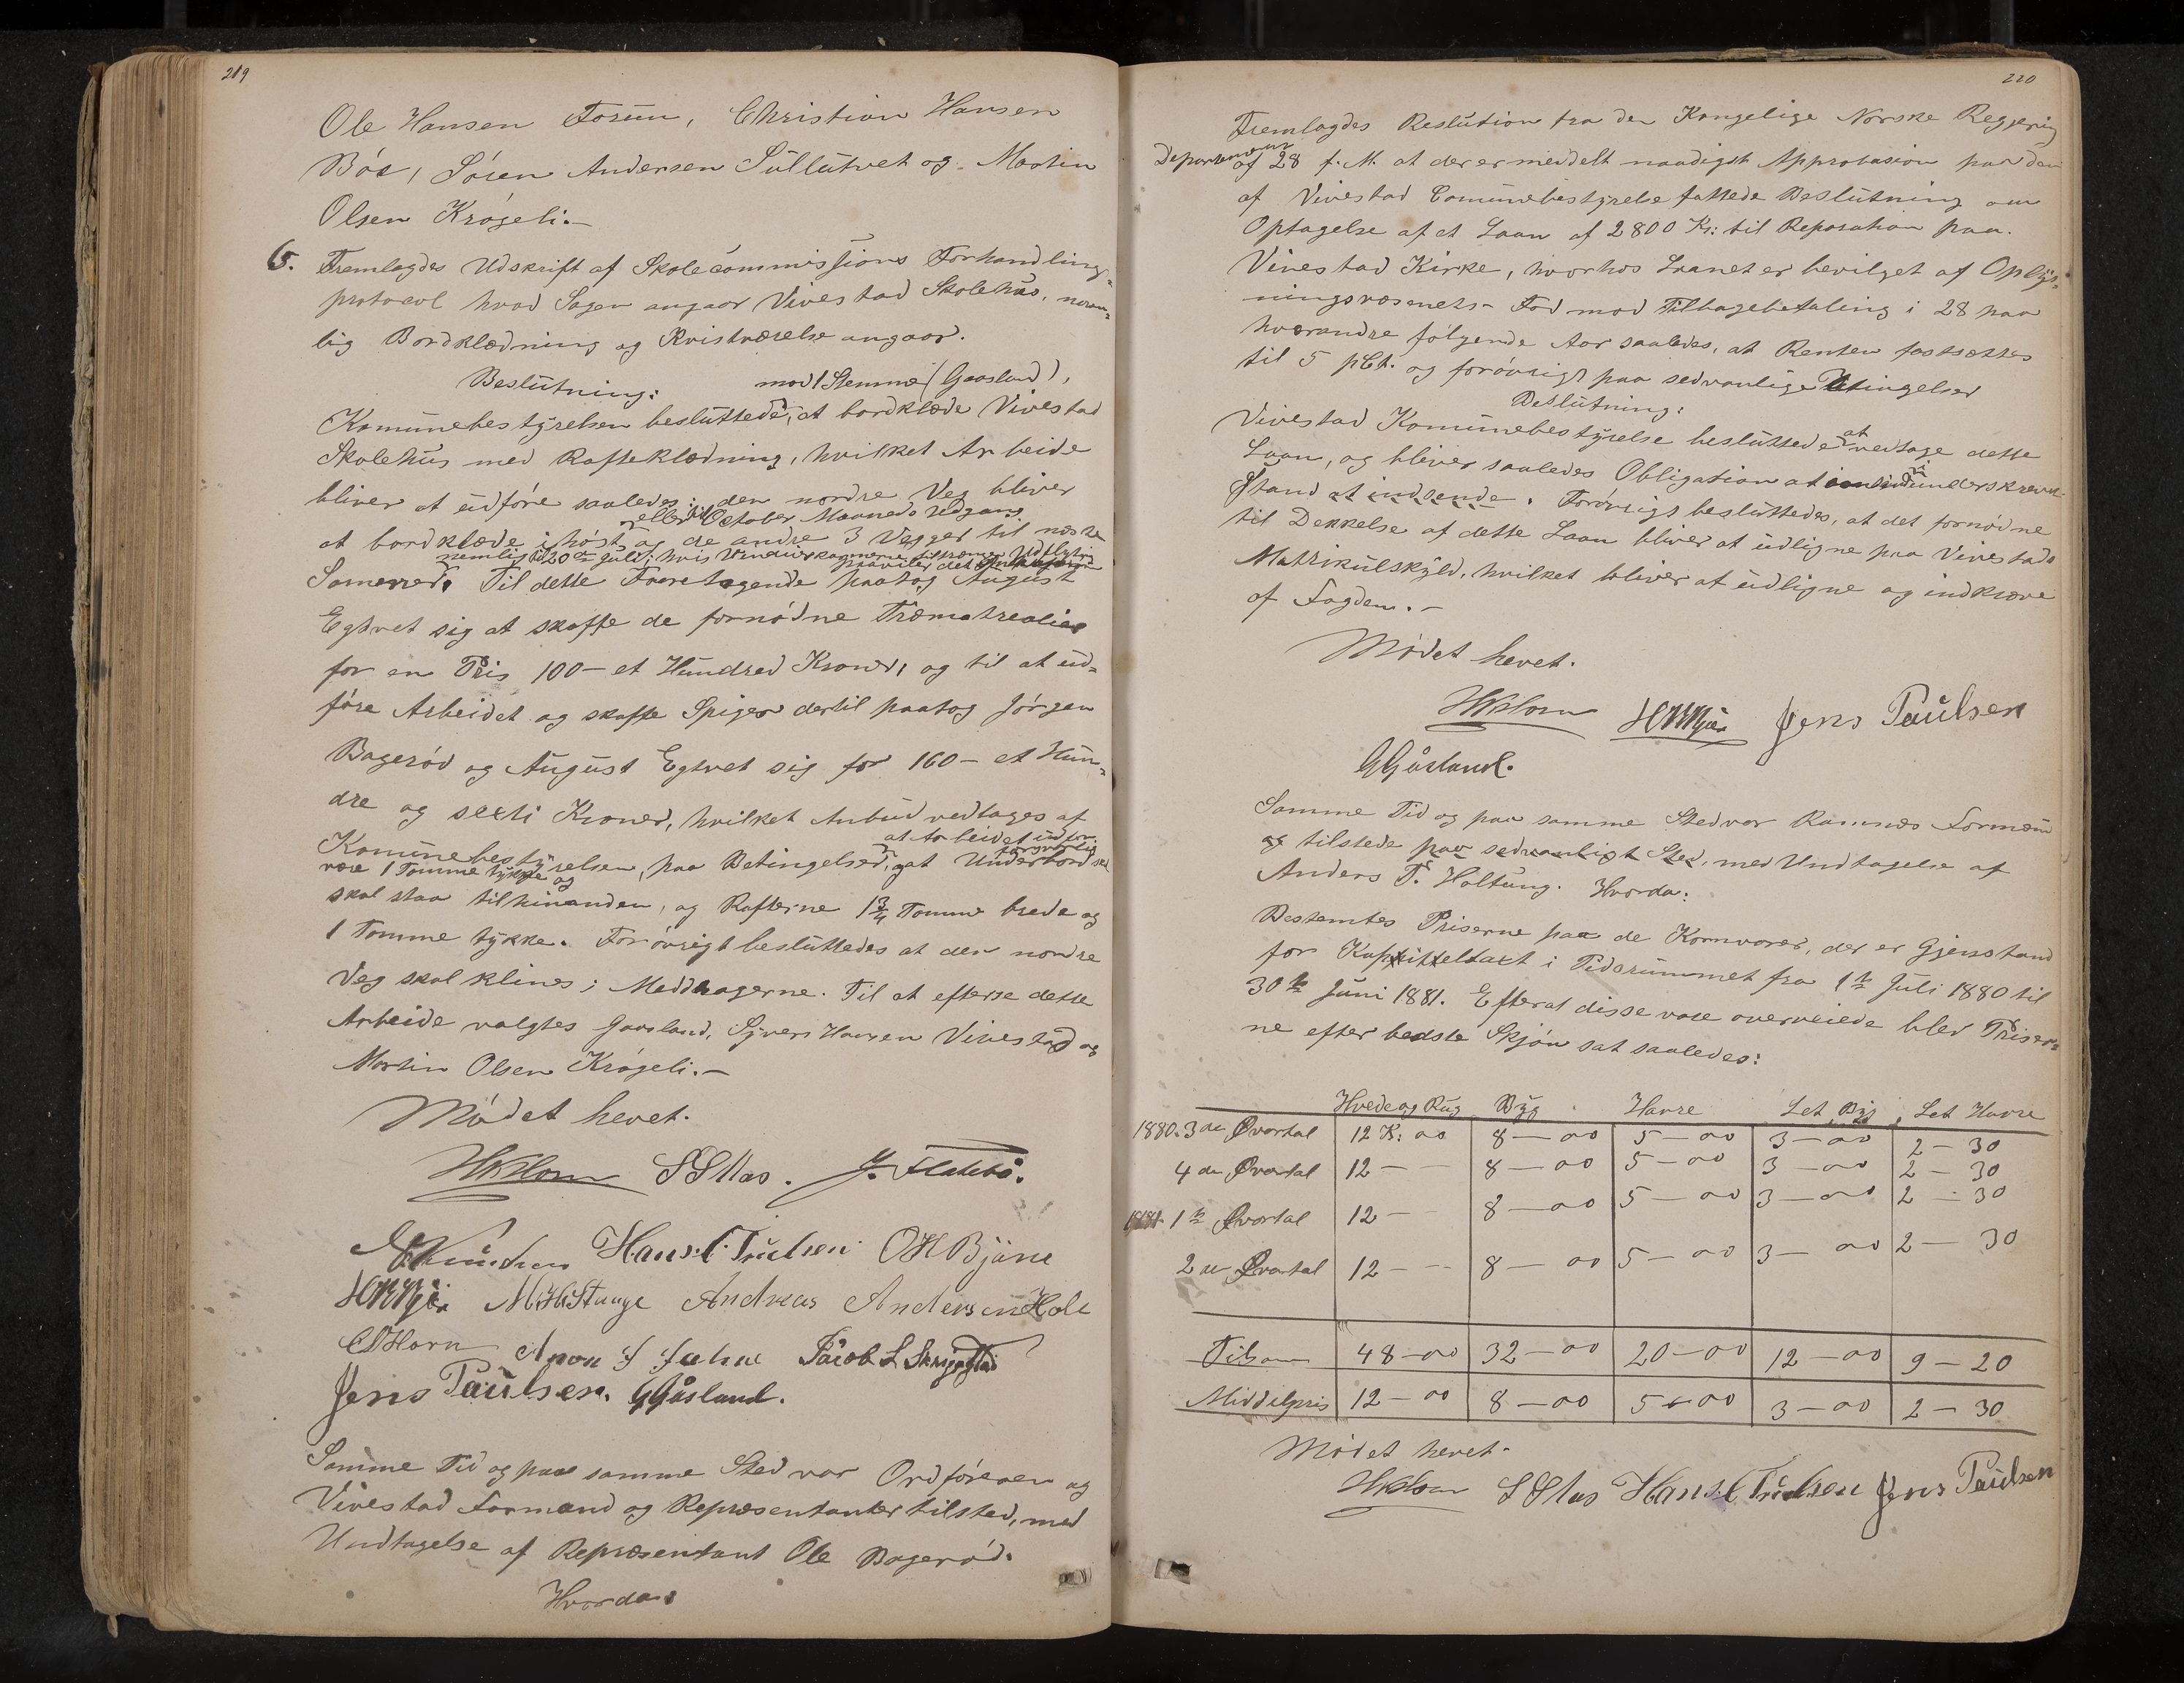 219
Ole Hansen Fosum, Christian Hansen
Bøe, Sören Andersen Sullutvet og Martin
Olsen Krøgeli.-
6. Fremlagdes Udskrift af Skolecommissions Forhandlings-
protocol hvad Sagen angaar Vivestad Skolehus, nem-
lig Bordklædning og Kvistværelse angaar.
Beslutning:
mod 1 Stemme (Gaasland),
Komunebestyrelsen besluttede, at bordklæde Vivestad
Skolehus med Rafteklædning, hvilket Arbeide
bliver at udføre saaledes: den nordre Veg bliver
eller til October Maaneds Udgang
at bordklæde i høst, og de andre 3 Vegger til næste
nemlig til 20de Juli; hvis
paaviler det
Somerred. Til dette Foretagende paatog August
Egtvet sig at skaffe de fornødne Træmatrealier
for en Pris 100 - et Hundred Kroner, og til at ud-
føre Arbeidet og skaffe Spiger dertil paatog Jørgen
Bagerød og August Egtvet sig for 160 - et Hun-
dre og sexti Kroner, hvilket Anbud vedtages af
at Arbeidet udføres
forsvarlig
Komunebestyrelsen, paa Betingelser, at Underbord skal
være 1 Tomme tykke og
skal staa tilhinanden, og Rafterne 1 3/4 Tomme brede og
1 Tomme tykke. Forøvrigt besluttedes at den nordre
Veg skal klines i Meddragerne. Til at efterse dette
Arbeide valgtes Gaasland, Syvert Hansen Vivestad og
Martin Olsen Krøgeli.-
Mødet hevet.
HKlom SSAas. J. Flatebø.
Hans C Trulsen OH Bjune
M.H.Stange Andreas Andersen Holt
CAHorn Aron J Jahre Jacob L
Jens Paulsen. GGåsland.
Samme Tid og paa samme Sted var Ordføreren og
Vivestad Formænd og Repræsentanter tilsted, med
Undtagelse af Repræsentant Ole Bagerød.
Hvorda:
220
Fremlagdes Reslution fra den Kongelige Norske Regjering
Departement
af 28 f. M. at der er meddelt naadigst Approbasion paa den
af Vivestad Comunebestyrelse fattede Beslutning om
Optagelse af et Laan af 2800 Kr: til Reparation paa
Vivestad Kirke, hvorhos Laanet er bevilget af Oplys-
ningsvæsenets- Fod mod Tilbagebetaling i 28 paa
hværandre følgende Aar saaledes, at Renten fastsættes
til 5 pCt. og forøvrigt paa sedvanlige Betingelser
Beslutning:
Vivestad Komunebestyrelse besluttede at vedtage dette
Laan, og bliver saaledes Obligation at underskreven
Stand at indsende. Forøvrigt besluttedes, at det fornødne
til Dekkelse af dette Laan bliver at udligne paa Vivestads
Matrikulskyld, hvilket bliver at udligne og indkræve
af Fogden.-
Mødet hevet.
HKlom Jens Paulsen
GGåsland.
Samme Tid og paa samme Sted var Ramnes Formænd
og tilstede paa sedvanligt Sted, med Undtagelse af
Anders T. Holtung. Hvorda:
Bestemtes Priserne paa de Kornvarer, der er Gjenstand
for Kapitteltaxt i Tidsrummet fra 1te Juli 1880 til
30te Juni 1881. Efterat disse vare overveiede blev Priser-
ne efter bedste Skjøn sat saaledes:
Hvede og Rug Byg Havre Let Byg Let Havre
1880. 3de Qvartal 12 K: 00 8 - 00 5 - 00 3 - 00 2 - 30
4de Qvartal 12 - - 8 - 00 5 - 00 3 - 00 2 - 30
1881. 1te Qvartal 12 - - 8 - 00 5 - 00 3 - 00 2 - 30
2det Qvartal 12 - - 8 - 00 5 - 00 3 - 00 2 - 30
Tilsam 48 - 00 32 - 00 20 - 00 12 - 00 9 - 20
Middelpris 12 - 00 8 - 00 5 - 00 3 - 00 2 - 30
Mødet hevet.
HKlom SSAas Hans C Trulsen Jens Paulsen